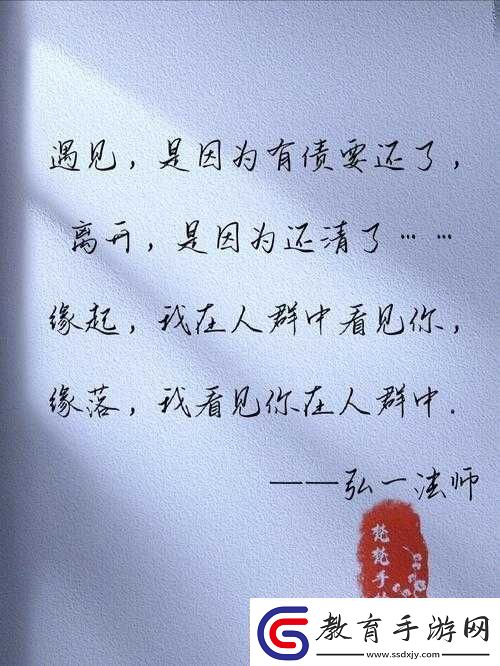 遇见，是因为有债要还了，
离开，是因为还清了……
缘起，我在人群中看见你，
缘落，我看见你在人群中.
——弘一法师
梵梵手
教育手游网
www.ssdxjy.com